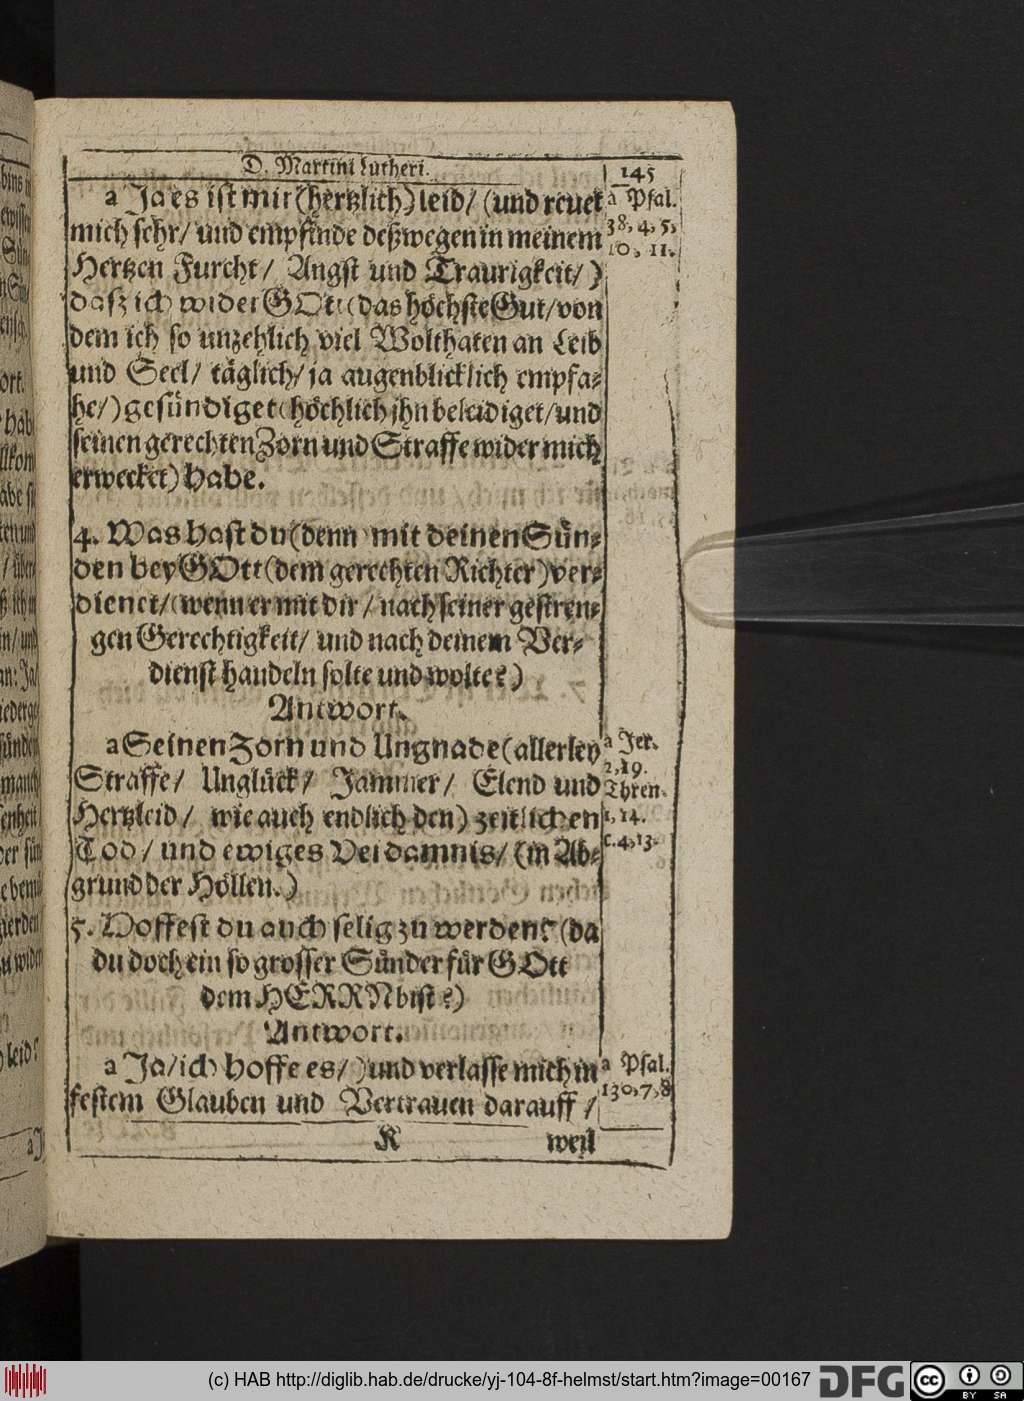 D. Martini Lutheri. 145
a Ja es ist mir (hertzlich) leid/ (und reuet
mich sehr/ und empfinde deßwegen in meinem
Hertzen Furcht/ Angst und Traurigkeit/)
daß ich wider GOtt (das höchste Gut/ von
dem ich so unzehlich viel Wolthaten an Leib
und Seel/ täglich/ ja augenblicklich empfa-
he/) gesündiget (höchlich jhn beleidiget/ und
seinen gerechten Zorn und Straffe wider mich
erwecket) habe.
a Psal.
38, 4, 5,
10, 11.
4. Was hast du (denn) mit deinen Sün-
den bey GOtt (dem gerechten Richter) ver-
dienet/ (wenn er mit dir/ nach seiner gestren-
gen Gerechtigkeit/ und nach deinem Ver-
dienst handeln solte und wolte?)
Antwort.
a Seinen Zorn und Ungnade (allerley
Straffe/ Unglück/ Jammer/ Elend und
Hertzleid/ wie auch endlich den) zeitlichen
Tod/ und ewiges Verdamnis/ (in Ab-
grund der Höllen.)
a Jer.
2, 19.
Thren.
1, 14.
c. 4, 13.
5. Hoffest du auch selig zu werden? (da
du doch ein so grosser Sünder für GOtt
dem HERRN bist?)
Antwort.
a Ja/ ich hoffe es/) und verlasse mich in
festem Glauben und Vertrauen darauff/
a Psal.
130, 7, 8
K weil
(c) HAB http://diglib.hab.de/drucke/yj-104-8f-helmst/start.htm?image=00167
DFG
cc BY SA